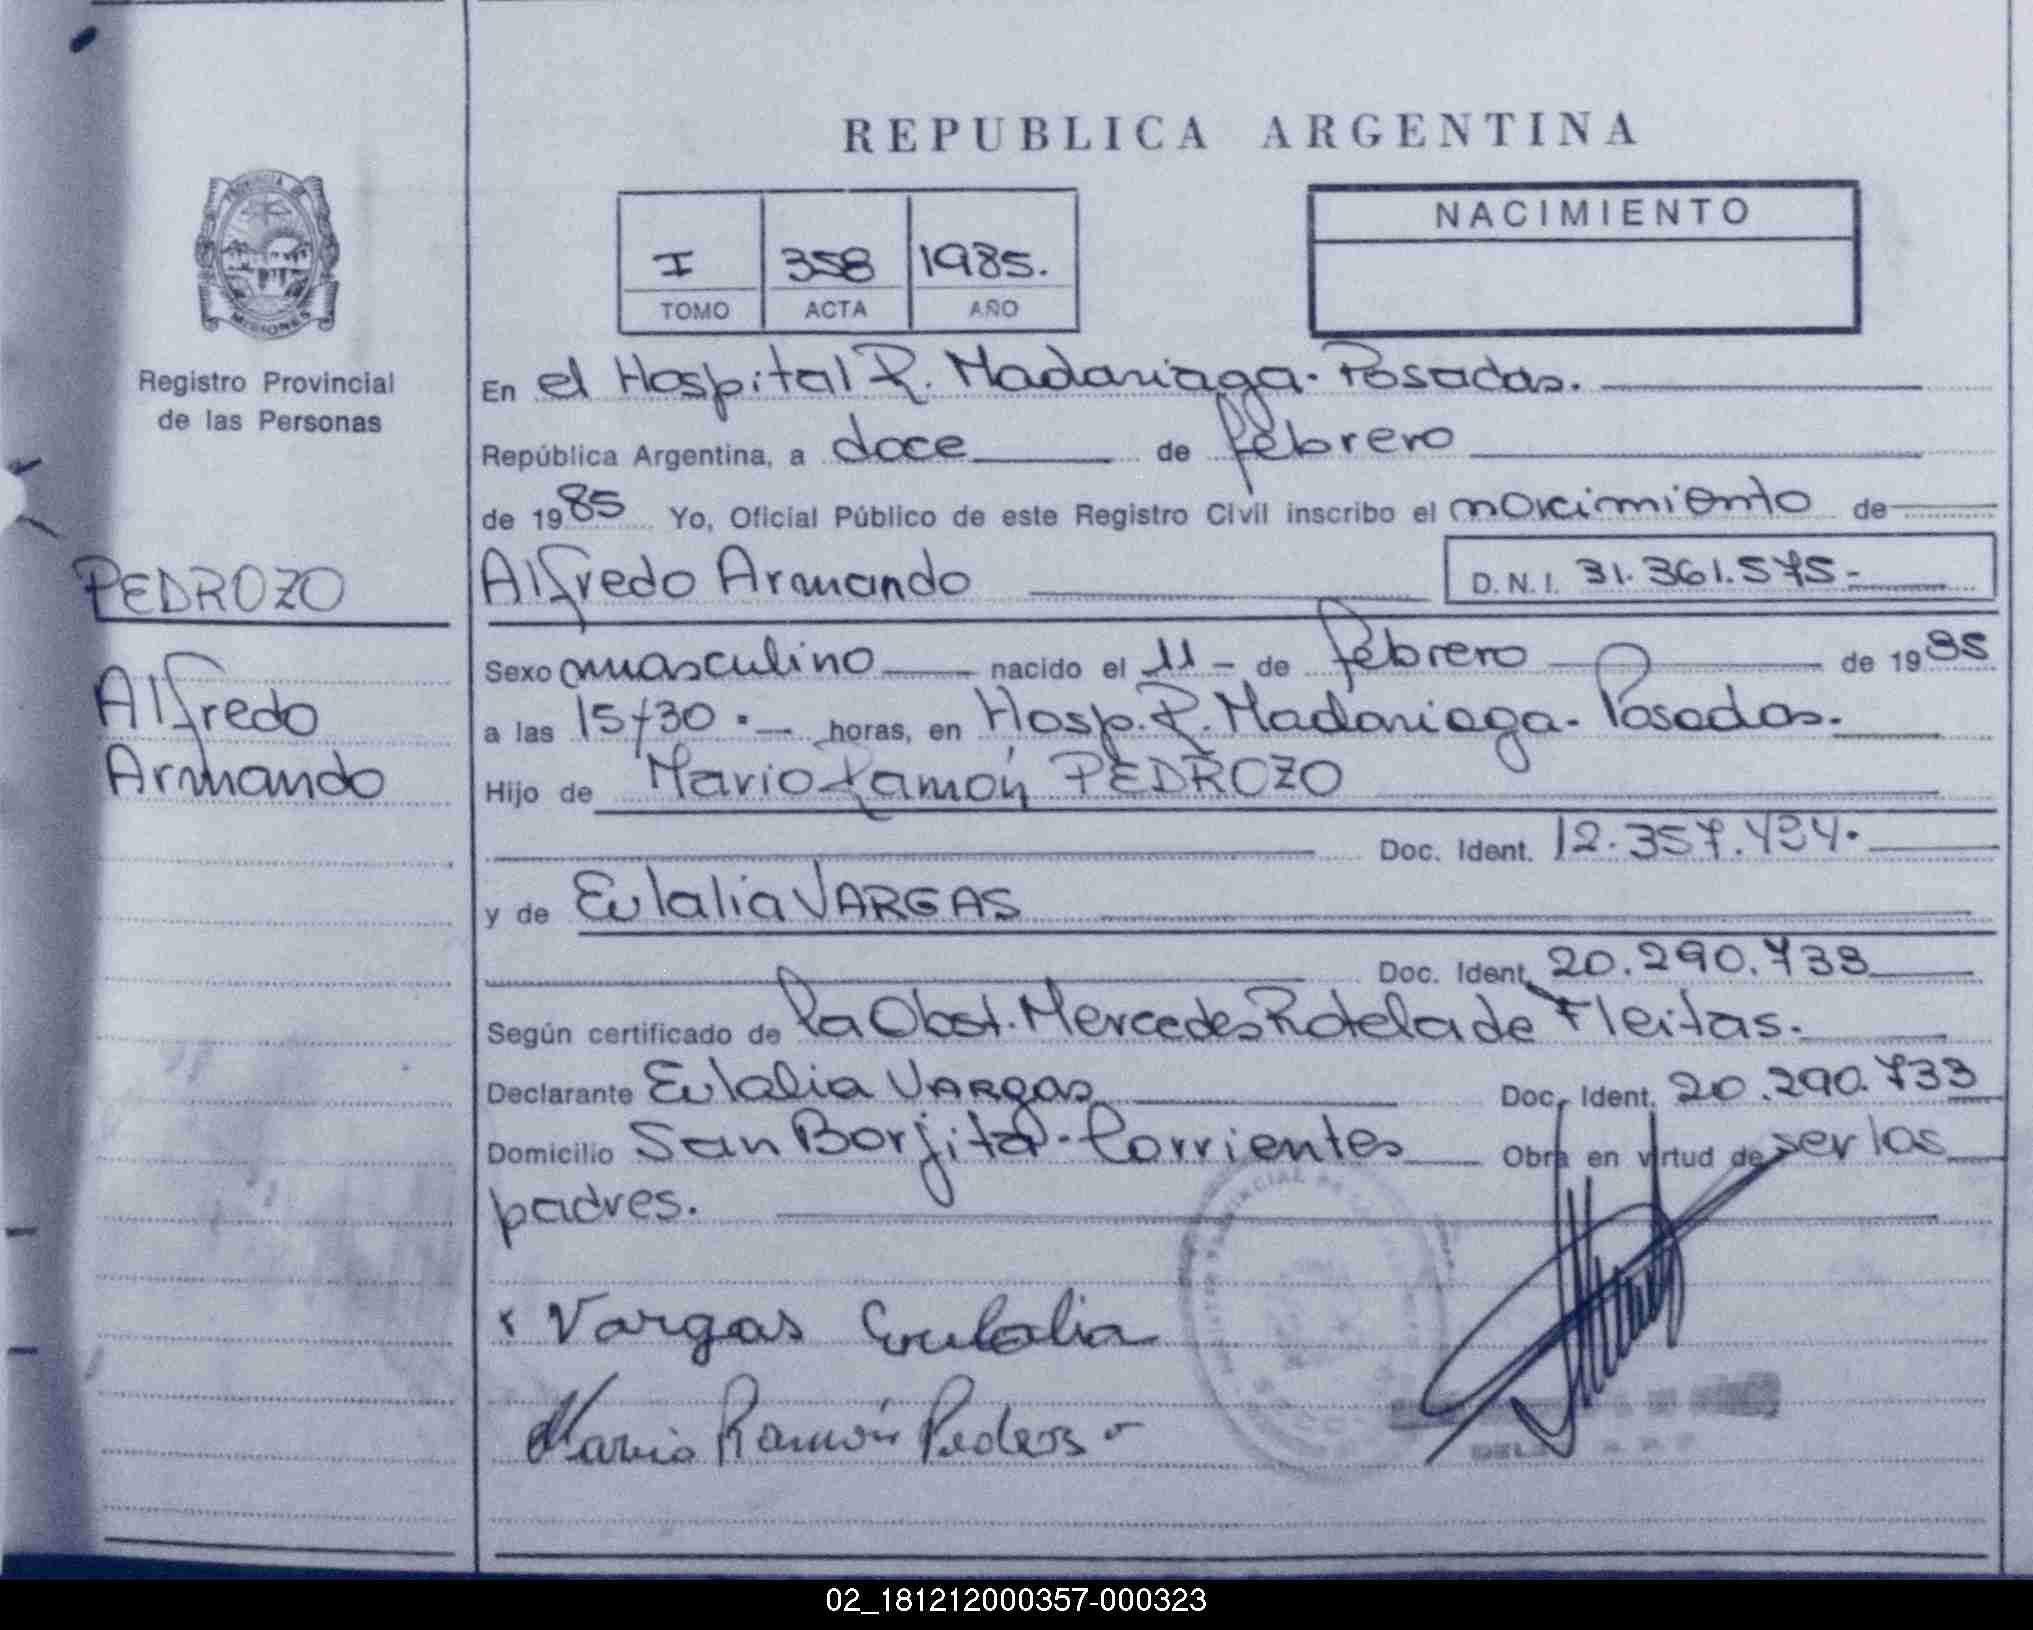 REPUBLICA ARGENTINA
MISIONES
Registro Provincial
de las Personas
I 358 1985.
TOMO ACTA AÑO
NACIMIENTO
En el Hospital R. Madariaga - Posadas.
República Argentina, a doce de febrero
de 1985 Yo, Oficial Público de este Registro Civil inscribo el nacimiento de
PEDROZO
Alfredo Armando
Alfredo Armando D.N.I. 31.361.575.-
Sexo masculino nacido el 11 - de febrero de 1985
a las 15/30 . - horas, en Hosp. R. Madariaga - Posadas.
Hijo de Mario Ramón PEDROZO
Doc. Ident. 12.357.494.
y de Eulalia VARGAS
Doc. Ident. 20.290.733
Según certificado de la Obst. Mercedes Rotela de Fleitas.
Declarante Eulalia VARGAS Doc. Ident. 20.290.733
Domicilio San Borjita - Corrientes Obra en virtud de ser los
padres.
Vargas Eulalia
Mario Ramón Pedroso
02_181212000357-000323